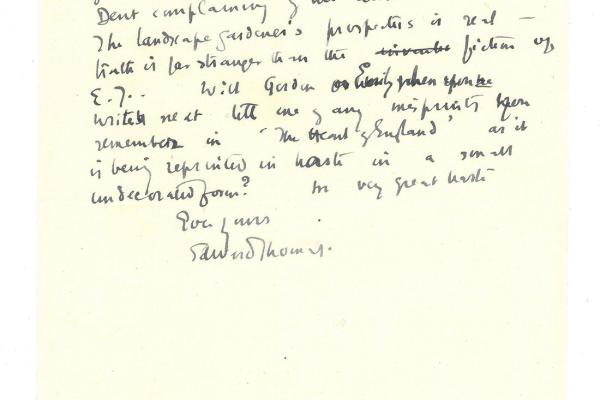 Dent complaining of
The landscape gardener's prospectus is real —
truth is far stranger than the invented fiction of
E.T.. Will Gordon or Emily when you
write next tell me of any misprints you
remember in 'The Heart of England' as it
is being reprinted in haste in a small
undecorated form? In very great haste
Ever yours
Edward Thomas.